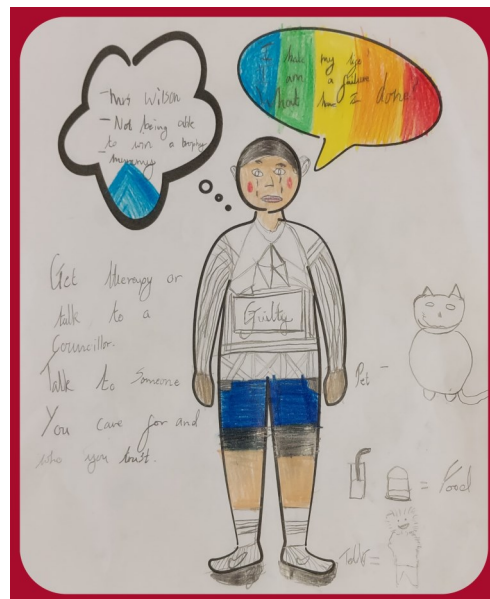 - Mrs Wilson
- Not being able
to win a trophy
I hate my life
I am a failure
What have I done
Guilty
Get therapy or
talk to a
Councillor.
Talk to Someone
You care for and
who you trust.
Pet -
= Food